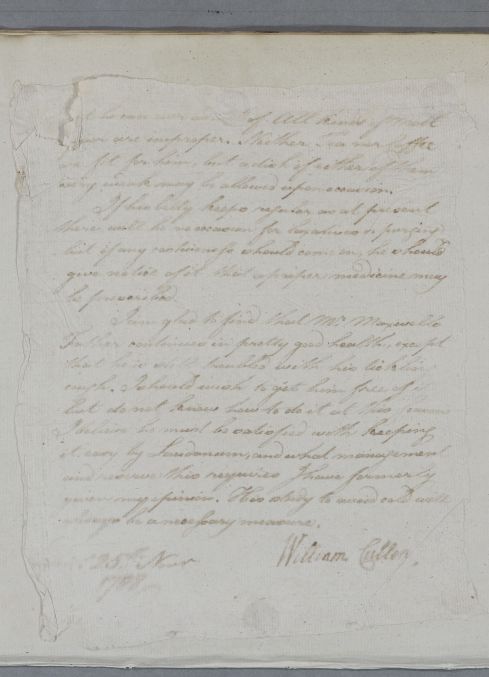 of All kinds of malt
are improper. Neither Tea nor Coffee
fit for him, but a dish of either of them
very weak may be allowed upon occasion.
If his belly keeps regular as at present
there will be no occasion for Laxatives or purging
but if any costiveness should come on, he should
give notice of it that a proper medicine may
be prescribed.
I am glad to find that Mr. Maxwells
Father continues in pretty good health, except
that he is still troubled with his tickling
cough. I should wish to get him free of it
but do not know how to do it at this Season
I believe he must be satisfied with keeping
it easy by Laudanum, and what management
and this requires I have formerly
given my opinion. His study to avoid cold will
always be a necessary measure.
William Cullen.
25th. Novr